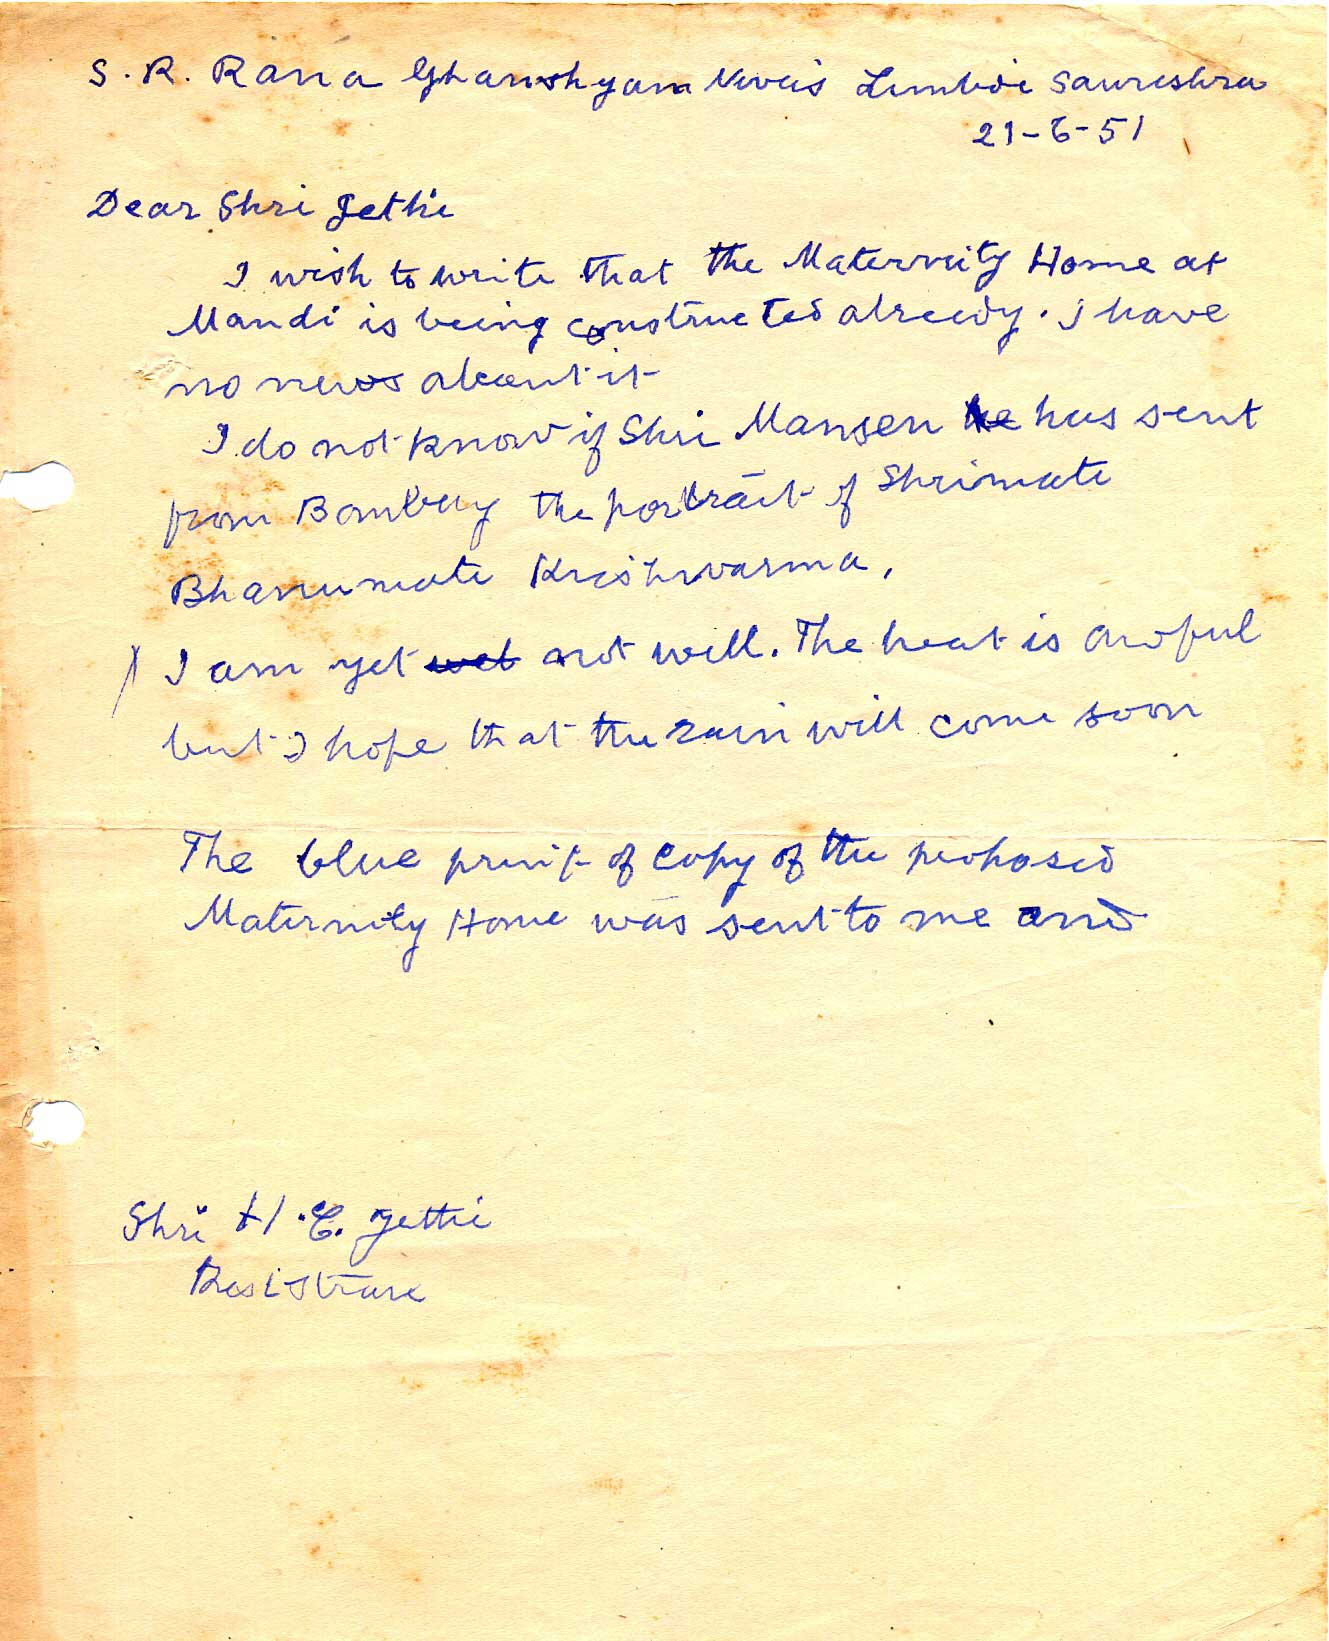 S. R. Rana Ghanshyam Nivas Limbdi Saurashra
21-6-51
Dear Shri Jethi
I wish to write that the Maternity Home at
Mandi is being constructed already. I have
no news about it
I do not know if Shri Mansen he has sent
from Bombay the portrait of Shrimati
Bhanumati Krishnvarma,
I am yet wel not well. The heat is awful
but I hope that the rain will come soon
The blue print of copy of the proposed
Maternity Home was sent to me and
Shri H. C. Jethi